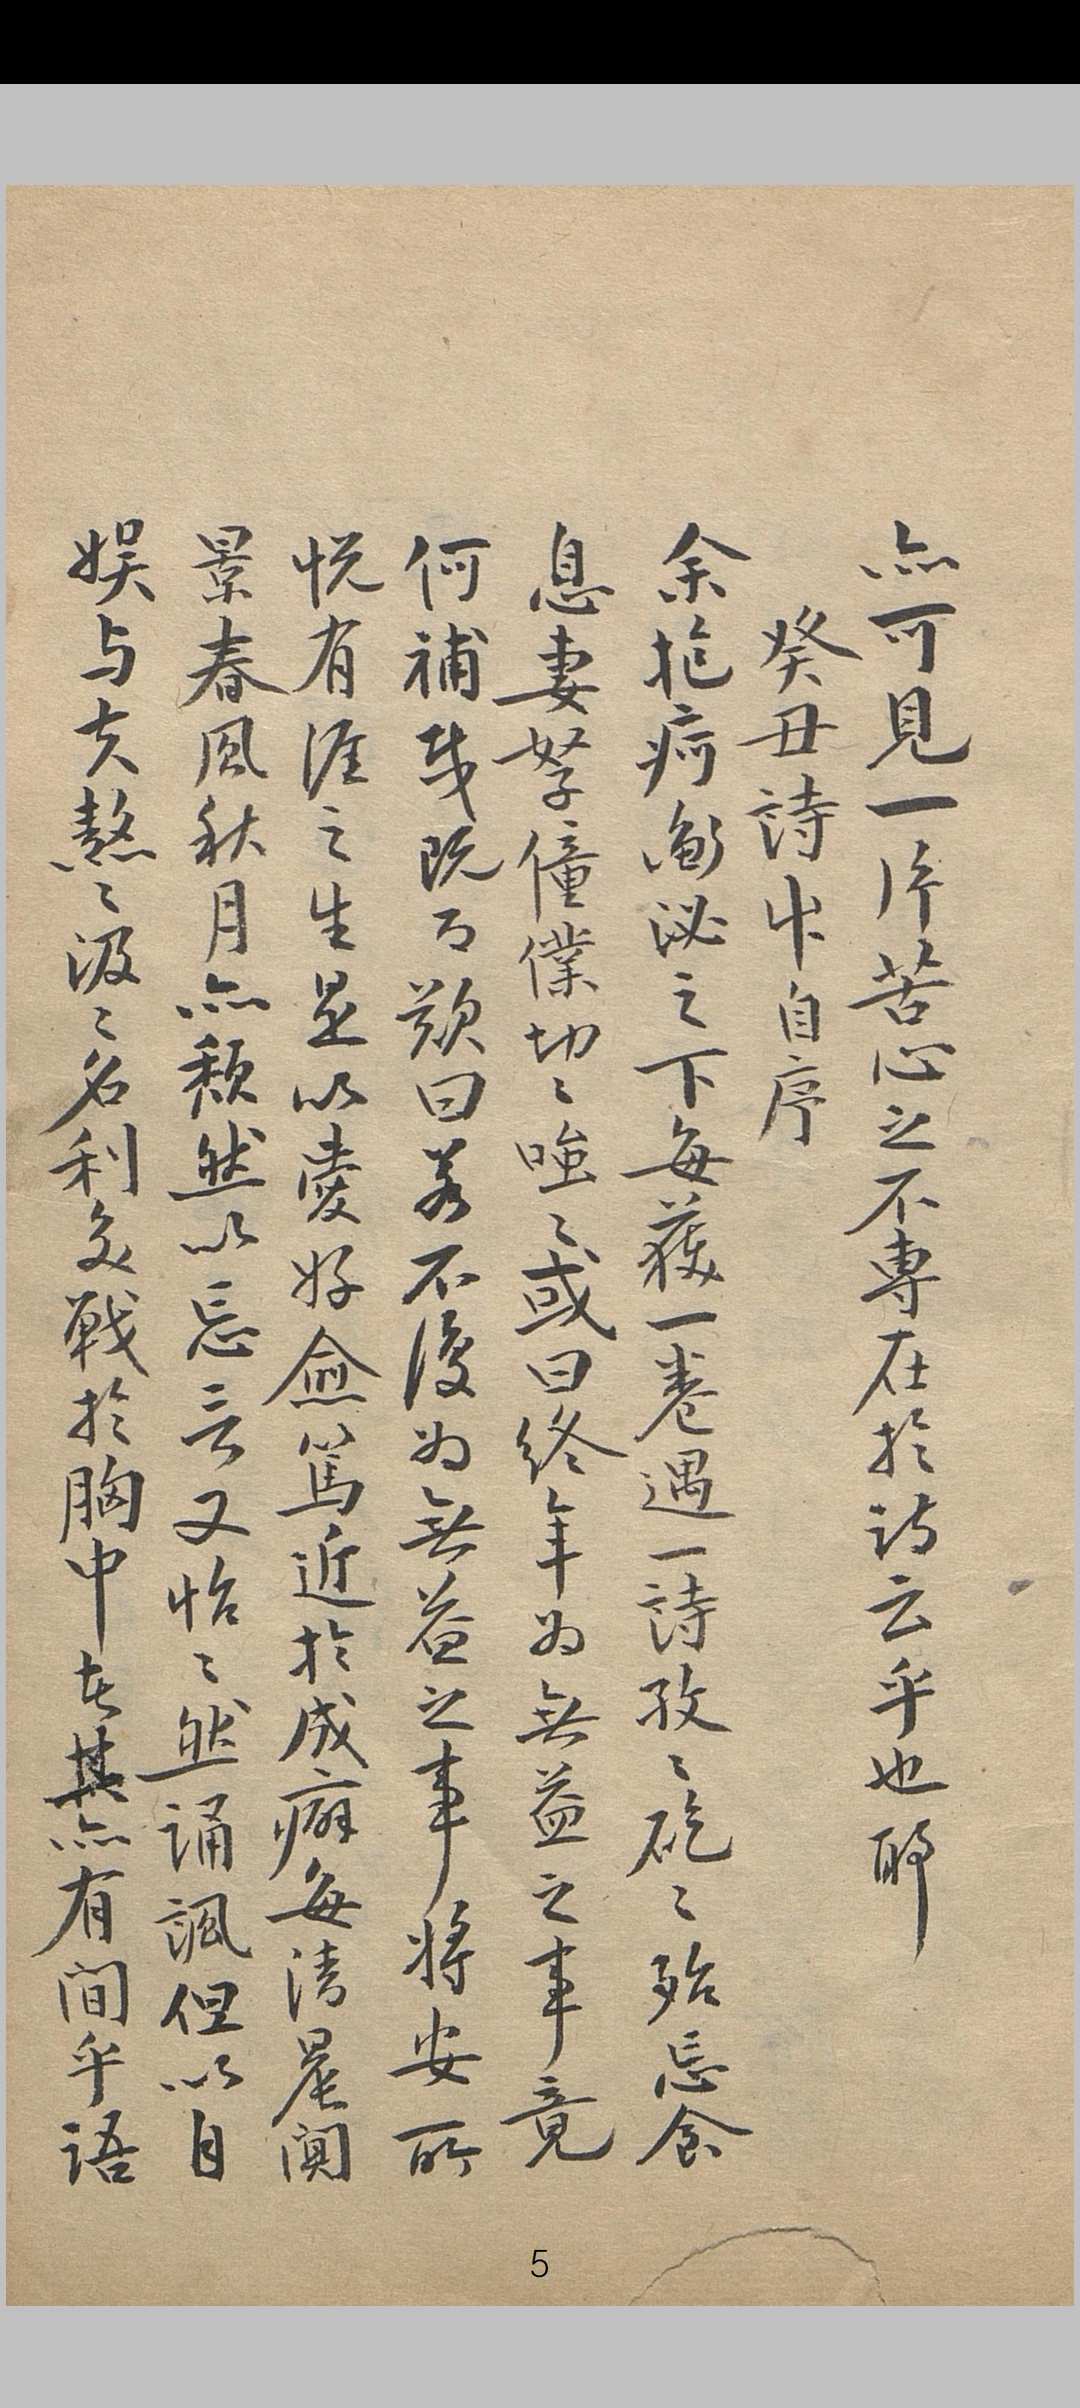 亦可見一片苦心之不專在於詩云乎也耶
癸丑詩草自序
余抱痾衡泌之下每獲一卷遇一詩孜〻矻〻殆忘食
息妻孥僮僕切〻嗤〻或曰終年为無益之事竟
何補哉既而歎曰若不復为無益之事將安所
悅有涯之生是以愛好愈篤近於成癖每清晨闃
景春風秋月亦頹然以忘言又怡〻然誦諷但以自
娱与夫熬〻汲〻名利交戰於胸中者其亦有間乎語
5